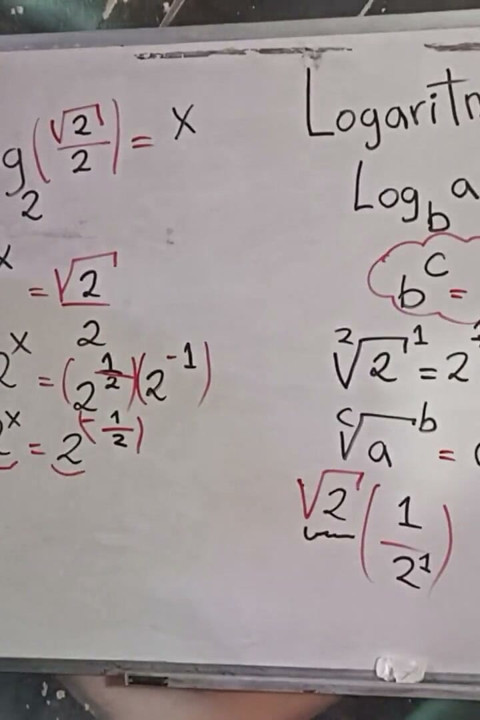 g₂(√2/2) = x
x = √2/2
2^x = (2^(1/2))(2^(-1))
2^x = 2^(-1/2)
Logarit
Log_b a
b^c =
²√2¹ = 2
ᶜ√aᵇ =
√2 (1/2¹)